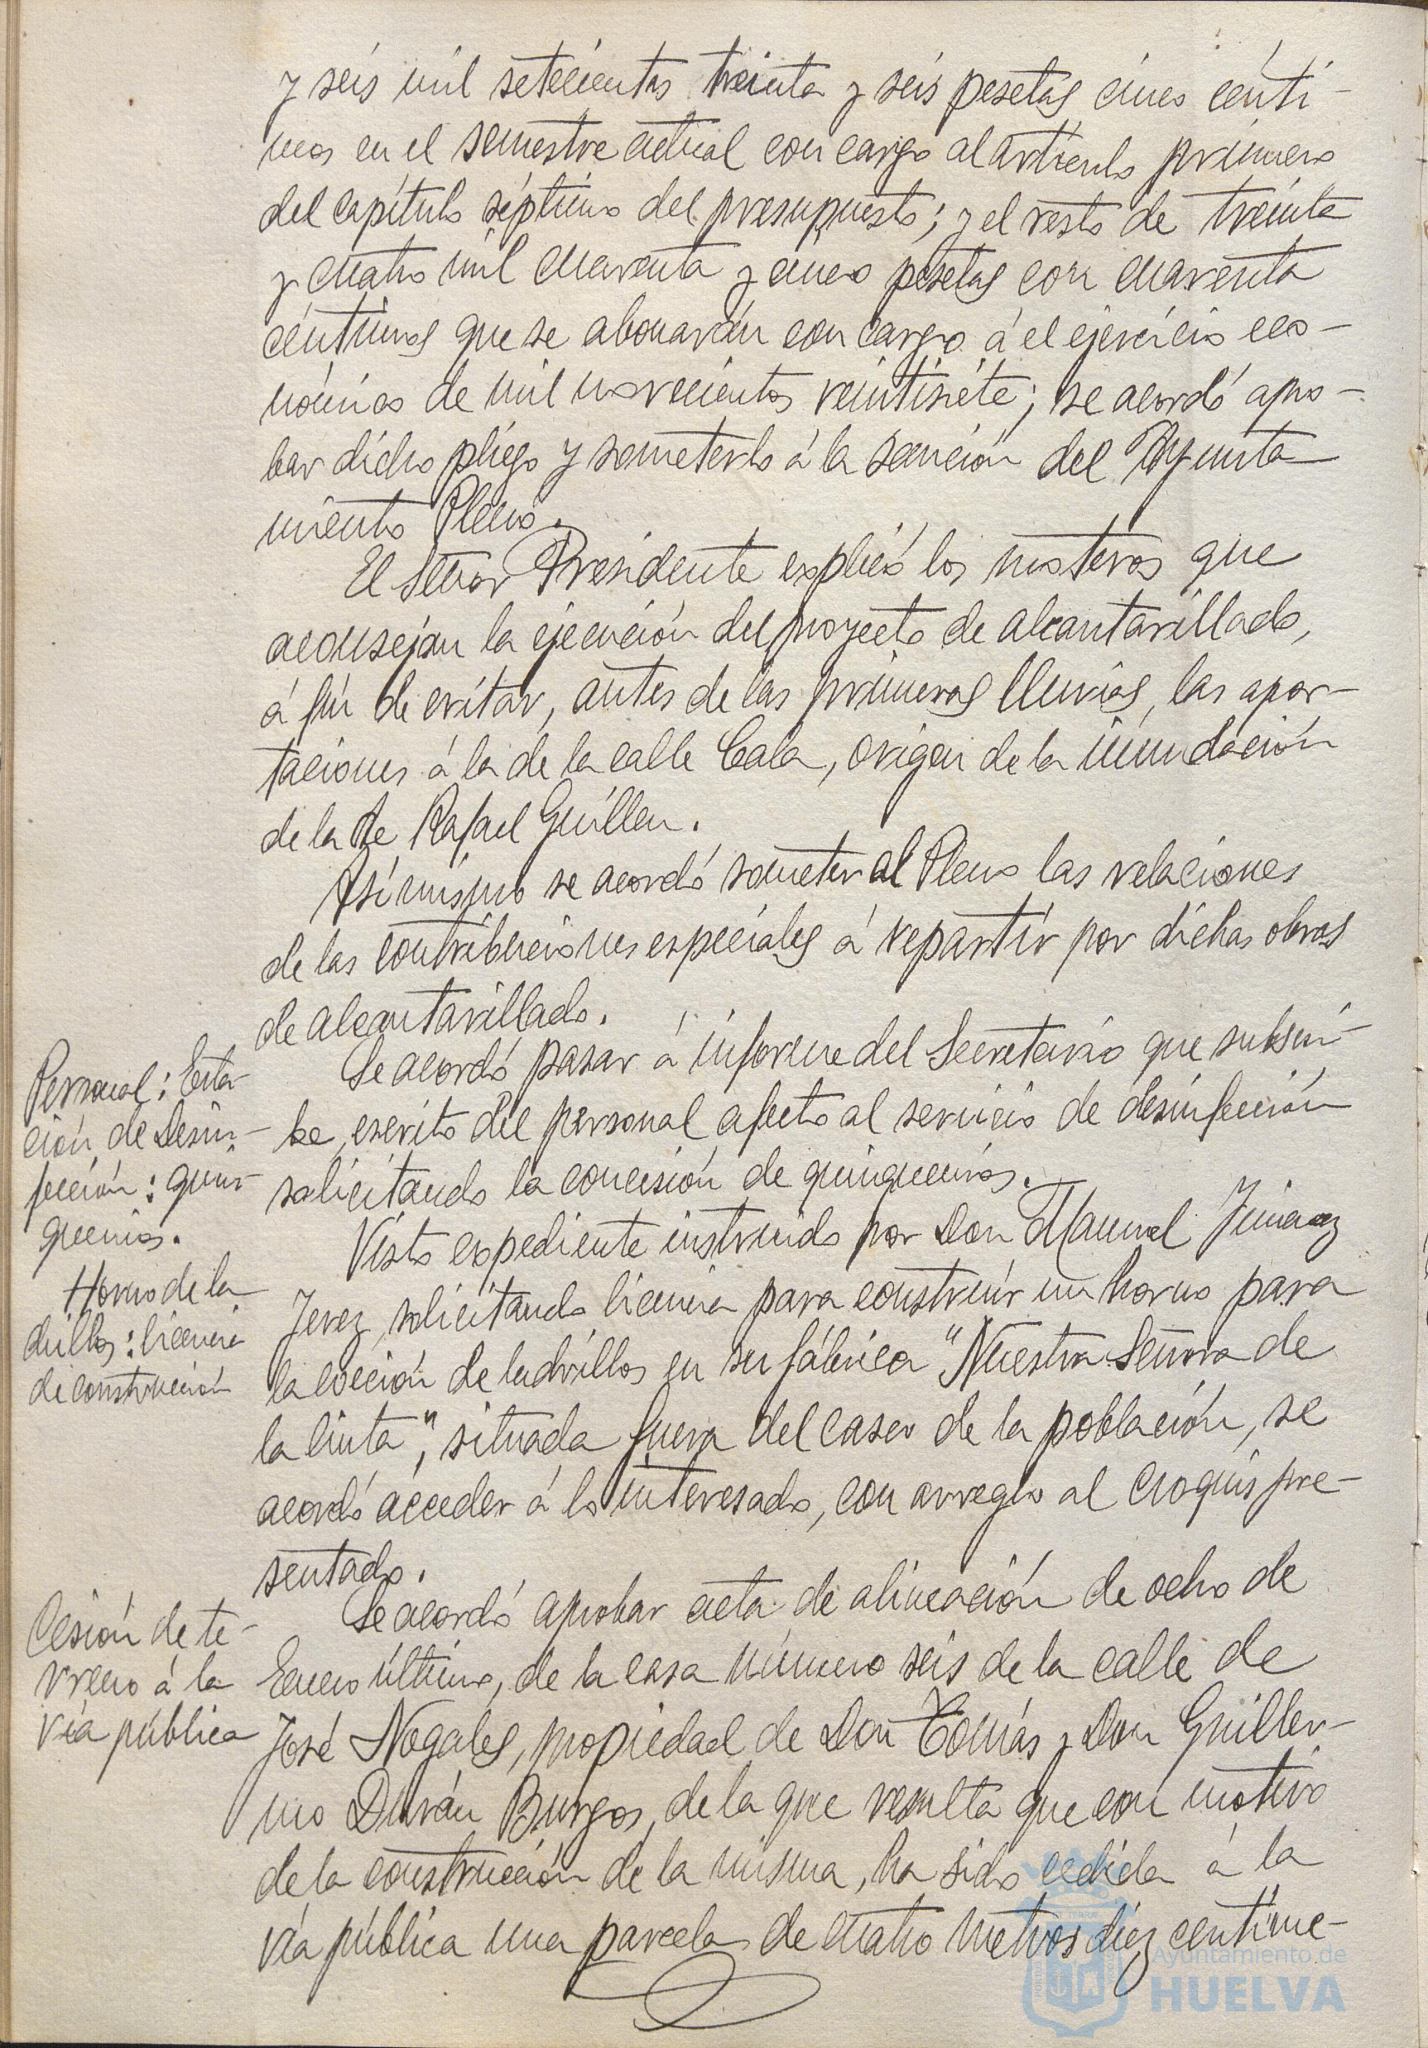 y seis mil setecientas treinta y seis pesetas cinco cénti-
mos en el semestre actual con cargo al artículo primero
del capítulo séptimo del presupuesto; y el resto de treinta
y cuatro mil cuarenta y cinco pesetas con cuarenta
céntimos que se abonarán con cargo á el ejercicio eco-
nómico de mil novecientos veintisiete; se acordó apro-
bar dicho pliego y someterlo á la sanción del Ayunta
miento Pleno.
El Señor Presidente explicó los motivos que
aconsejan la ejecución del proyecto de alcantarillado,
á fin de evitar, antes de las primeras lluvias, las apor-
taciones á la de la calle Cala, origen de la inundación
de la de Rafael Guillen.
Asimismo se acordó someter al Pleno las relaciones
de las contribuciones especiales á repartir por dichas obras
de alcantarillado.
Personal: Esta
ción de Desin-
fección: quin-
quenios.
Se acordó pasar á informe del Secretario que suscri-
be, escrito del personal afecto al servicio de desinfección
solicitando la concesión de quinquenios.
Horno de la
drillos: licencia
de construcción
Visto expediente instruido por Don Manuel Jimenez
Jerez, solicitando licencia para construir un horno para
la cocción de ladrillos en su fábrica "Nuestra Señora de
la Cinta", situada fuera del casco de la población, se
acordó acceder á lo interesado, con arreglo al croquis pre-
sentado.
Cesión de te-
rreno á la
vía pública
Se acordó aprobar acta de alineación de ocho de
Enero último, de la casa número seis de la calle de
José Nogales, propiedad de Don Tomás y Don Guiller-
mo Durán Burgos, de la que resulta que con motivo
de la construcción de la misma, ha sido cedida á la
vía pública una parcela de cuatro metros diez centíme-
Ayuntamiento de
HUELVA